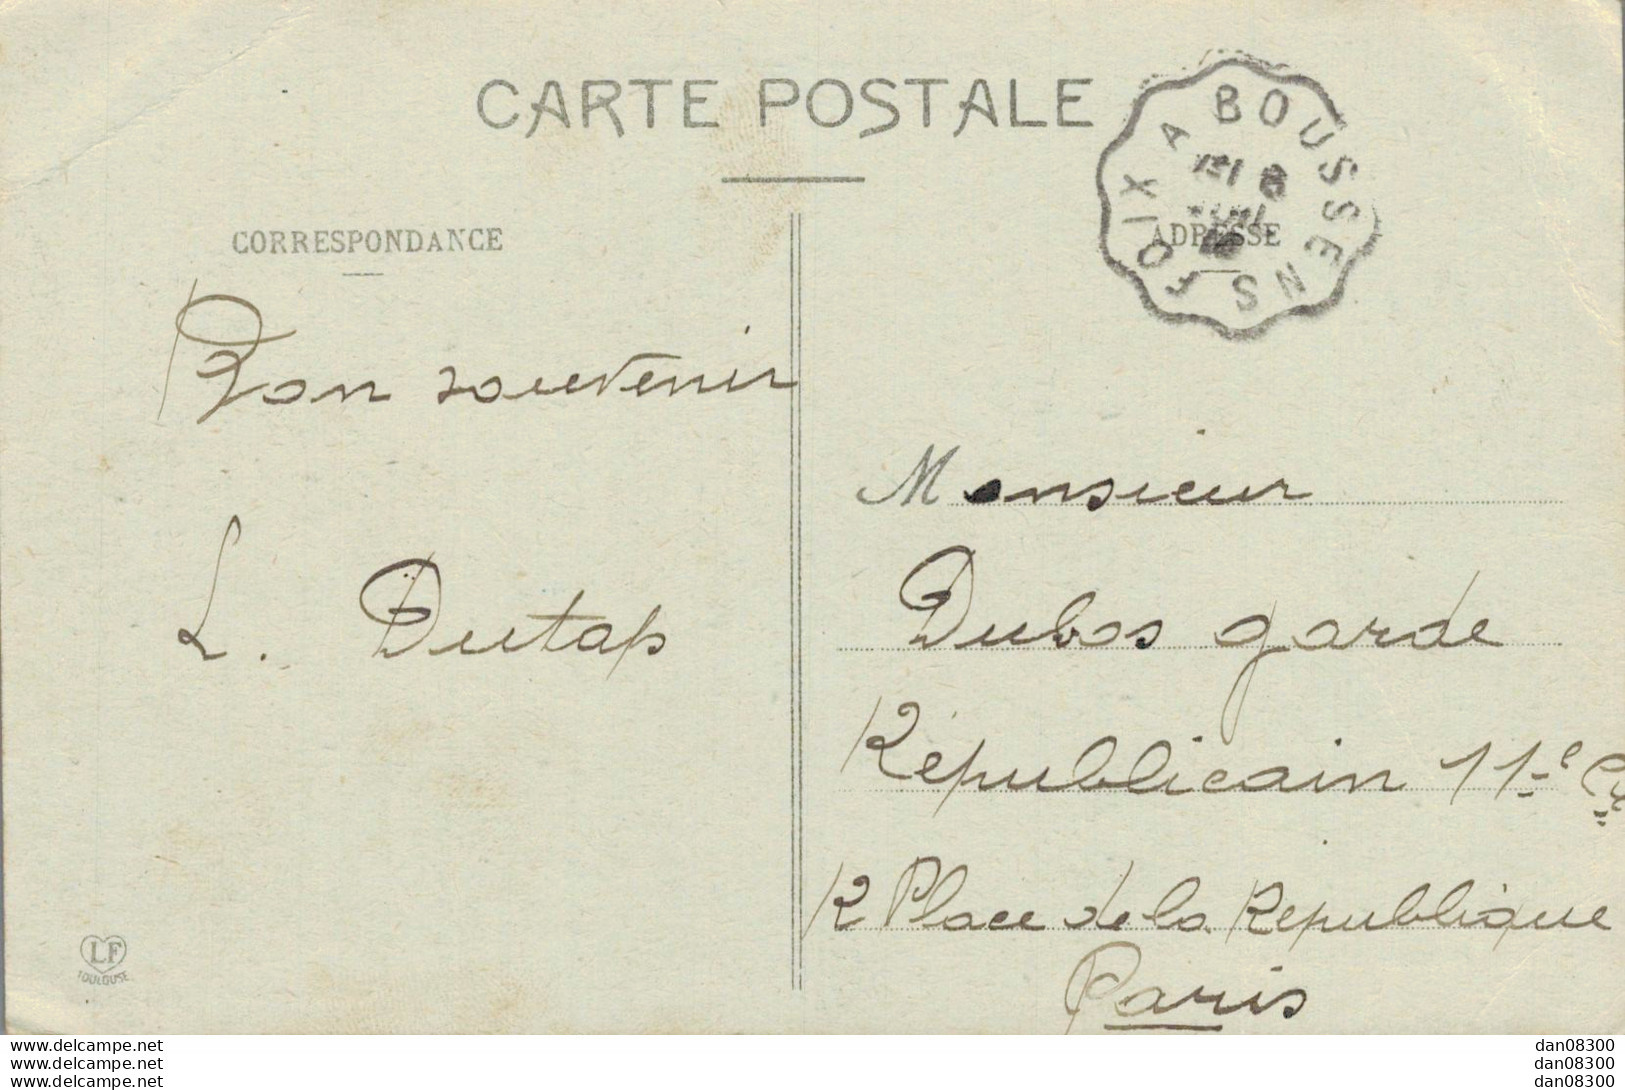 CARTE POSTALE
FOIX A BOUSSENS
CORRESPONDANCE
ADRESSE
Bon souvenir
L. Dutap
Monsieur
Dubos garde
Républicain 11e Cie
12 Place de la République
Paris
LF
TOULOUSE
www.delcampe.net
www.delcampe.net
www.delcampe.net
dan08300
dan08300
dan08300